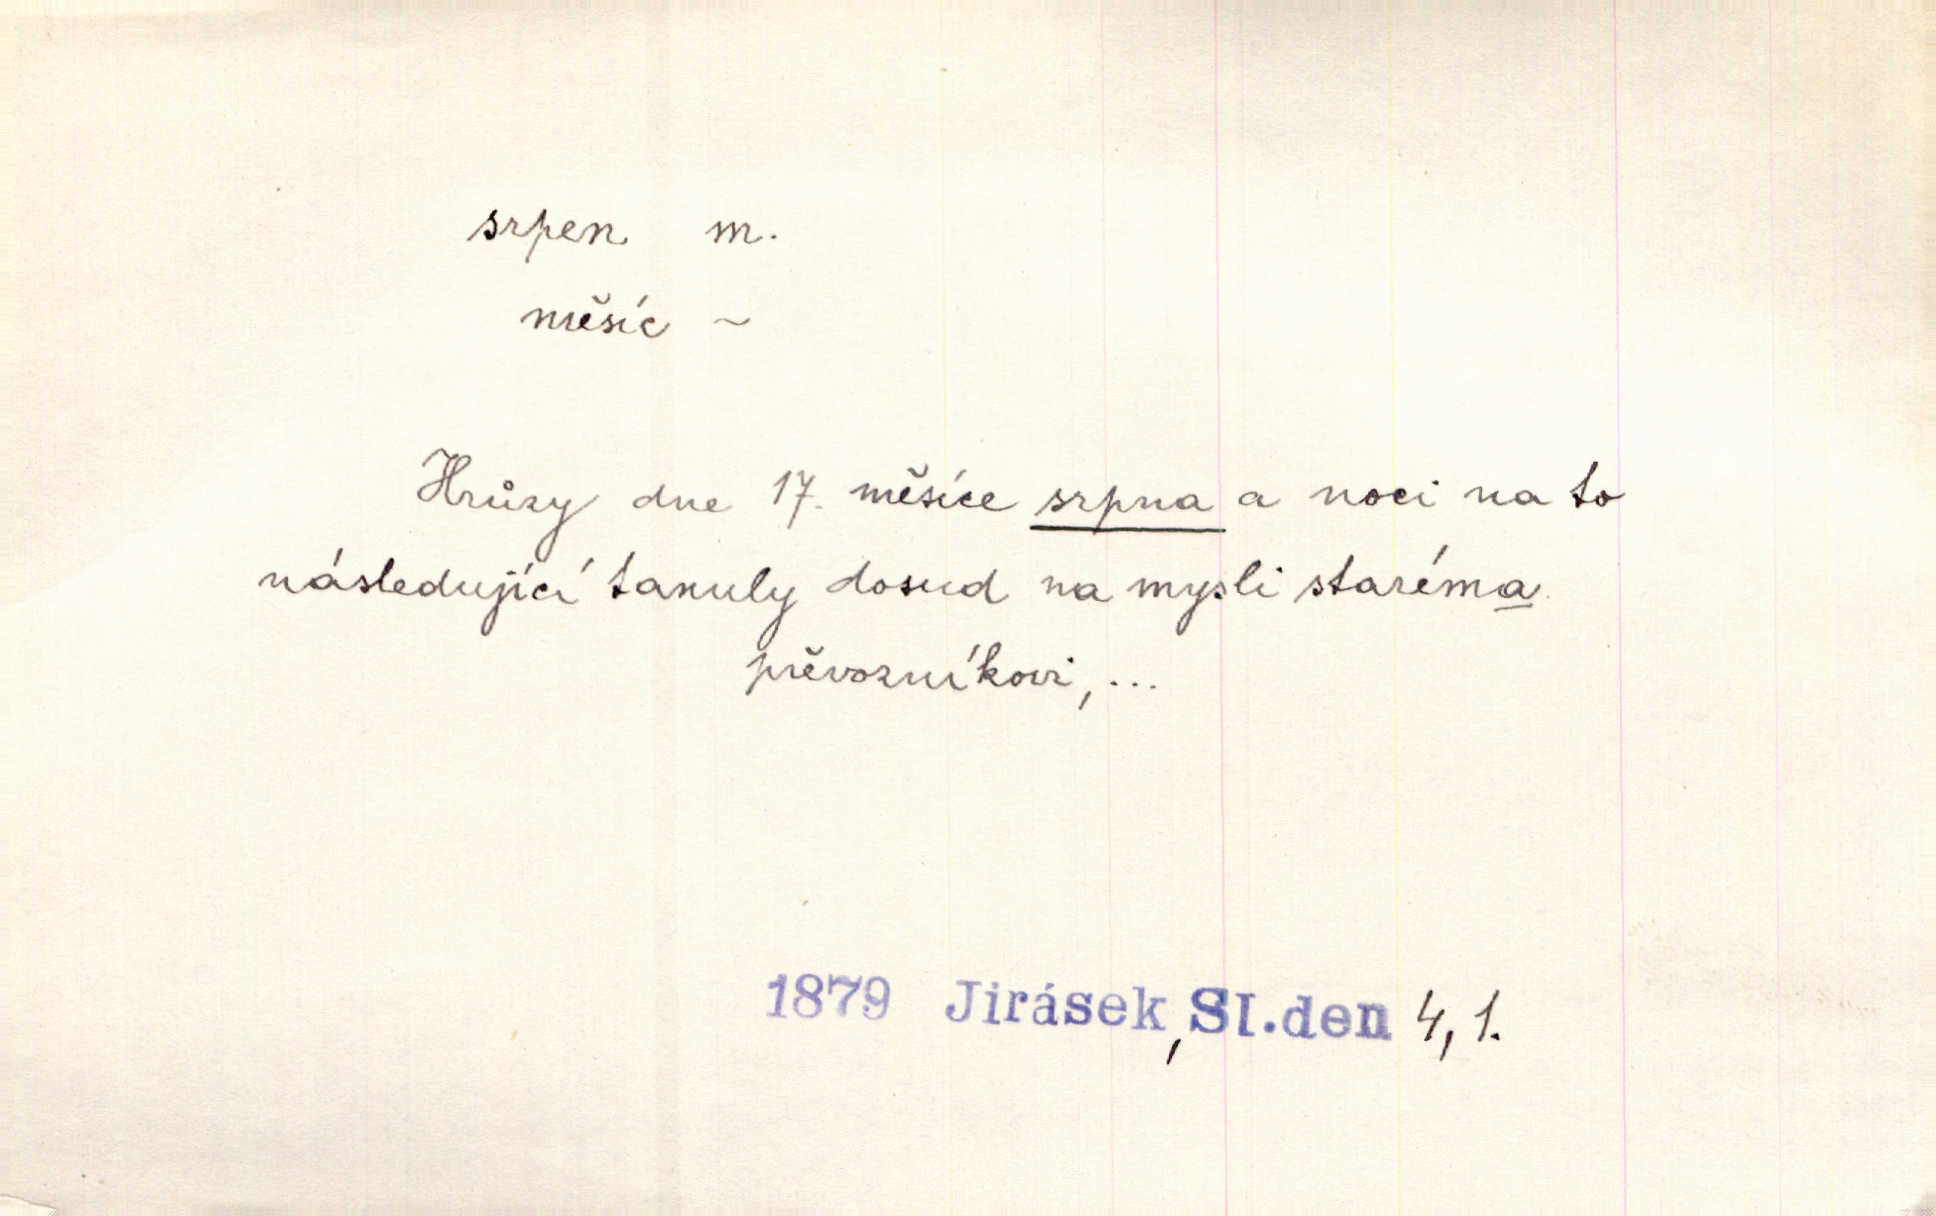 srpen m.
měsíc ~
Hrůzy dne 17. měsíce srpna a noci na to
následující tanuly dosud na mysli staréma
převozníkovi, ...
1879 Jirásek, Sl.den 4, 1.